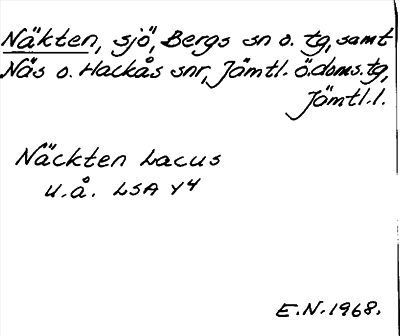 Näkten, sjö, Bergs sn o. tg, samt
Näs o. Hackås snr, Jämtl. ö.doms.tg,
Jämtl.l.
Näckten Lacus
u.å. LSA Y4
E.N. 1968.